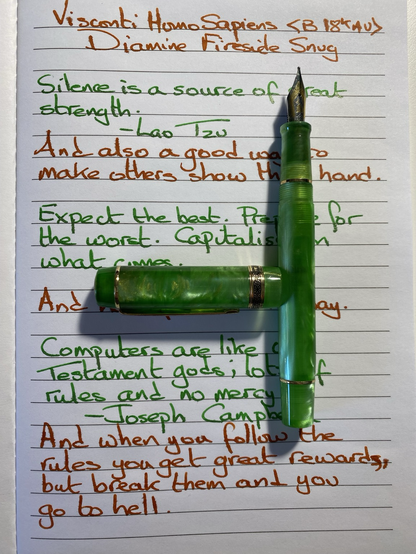 Visconti HomoSapiens <B 18kAU>
Diamine Fireside Snug
Silence is a source of great
strength.
-Lao Tzu
And also a good to
make others show hand.
Expect the best. for
the worst. Capitalise
what comes.
And
Computers are like
Testament gods; of
rules and no mercy
-Joseph
And when you follow the
rules you get great rewards,
but break them and you
go to hell.